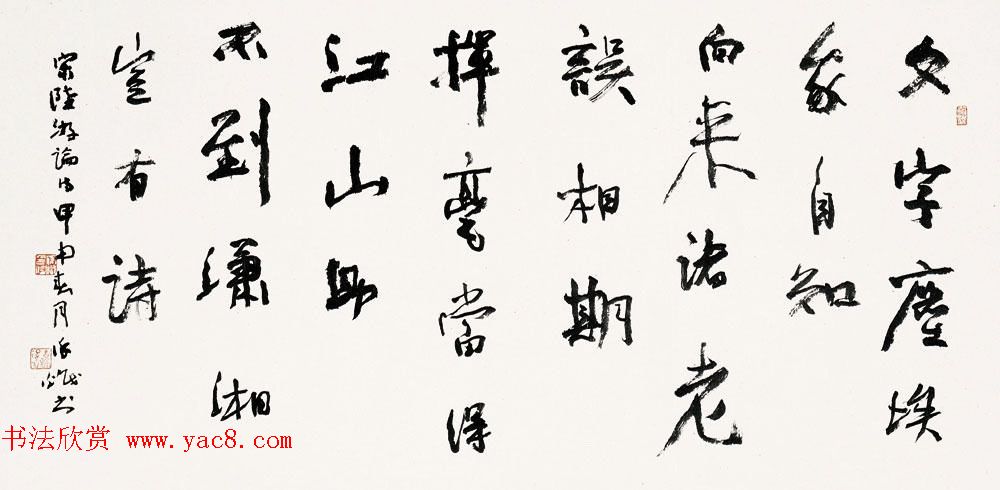 文字塵埃
我自知
向來諸老
誤相期
揮毫當得
江山助
不到瀟湘
豈有詩
宋陸游論詩甲申春月書
书法欣赏 www.yac8.com